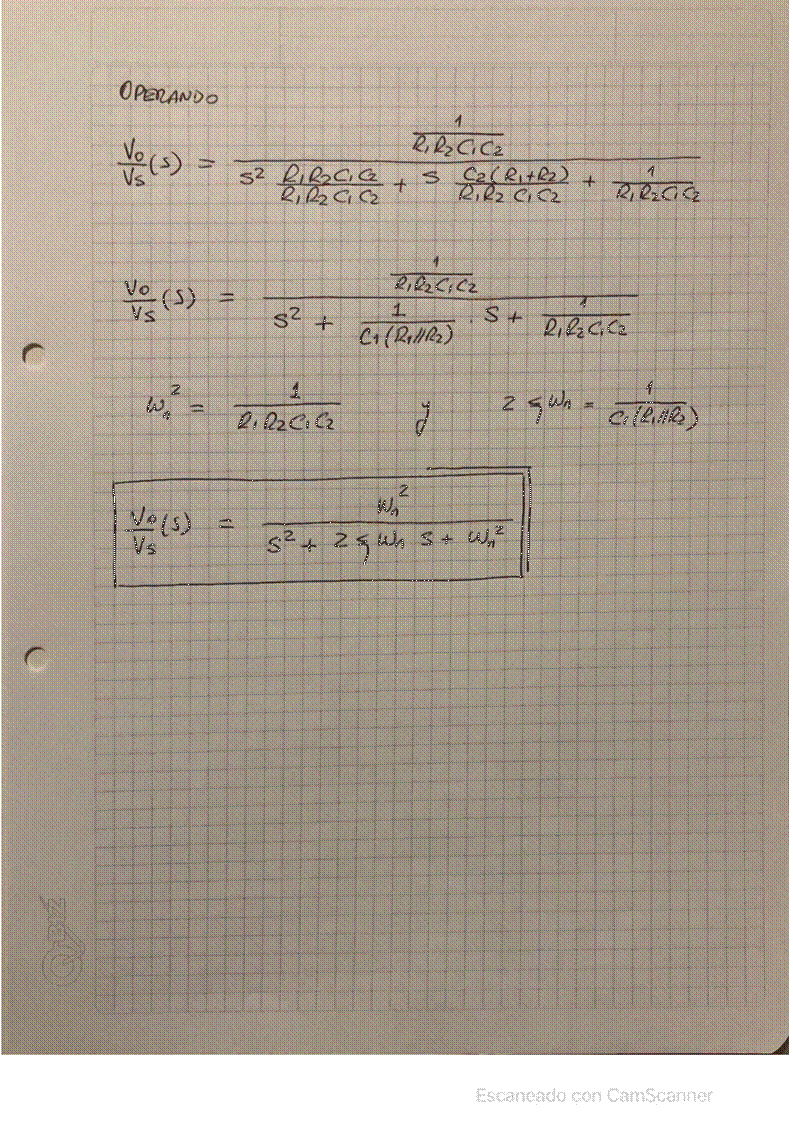 OPERANDO
Vo/Vs (s) = (1/(R1R2C1C2)) / (s² (R1R2C1C2)/(R1R2C1C2) + s (C2(R1+R2))/(R1R2C1C2) + 1/(R1R2C1C2))
Vo/Vs (s) = (1/(R1R2C1C2)) / (s² + 1/(C1(R1//R2)) . s + 1/(R1R2C1C2))
ωn² = 1/(R1R2C1C2) y 2ζωn = 1/(C1(R1//R2))
Vo/Vs (s) = ωn² / (s² + 2ζωn s + ωn²)
Escaneado con CamScanner